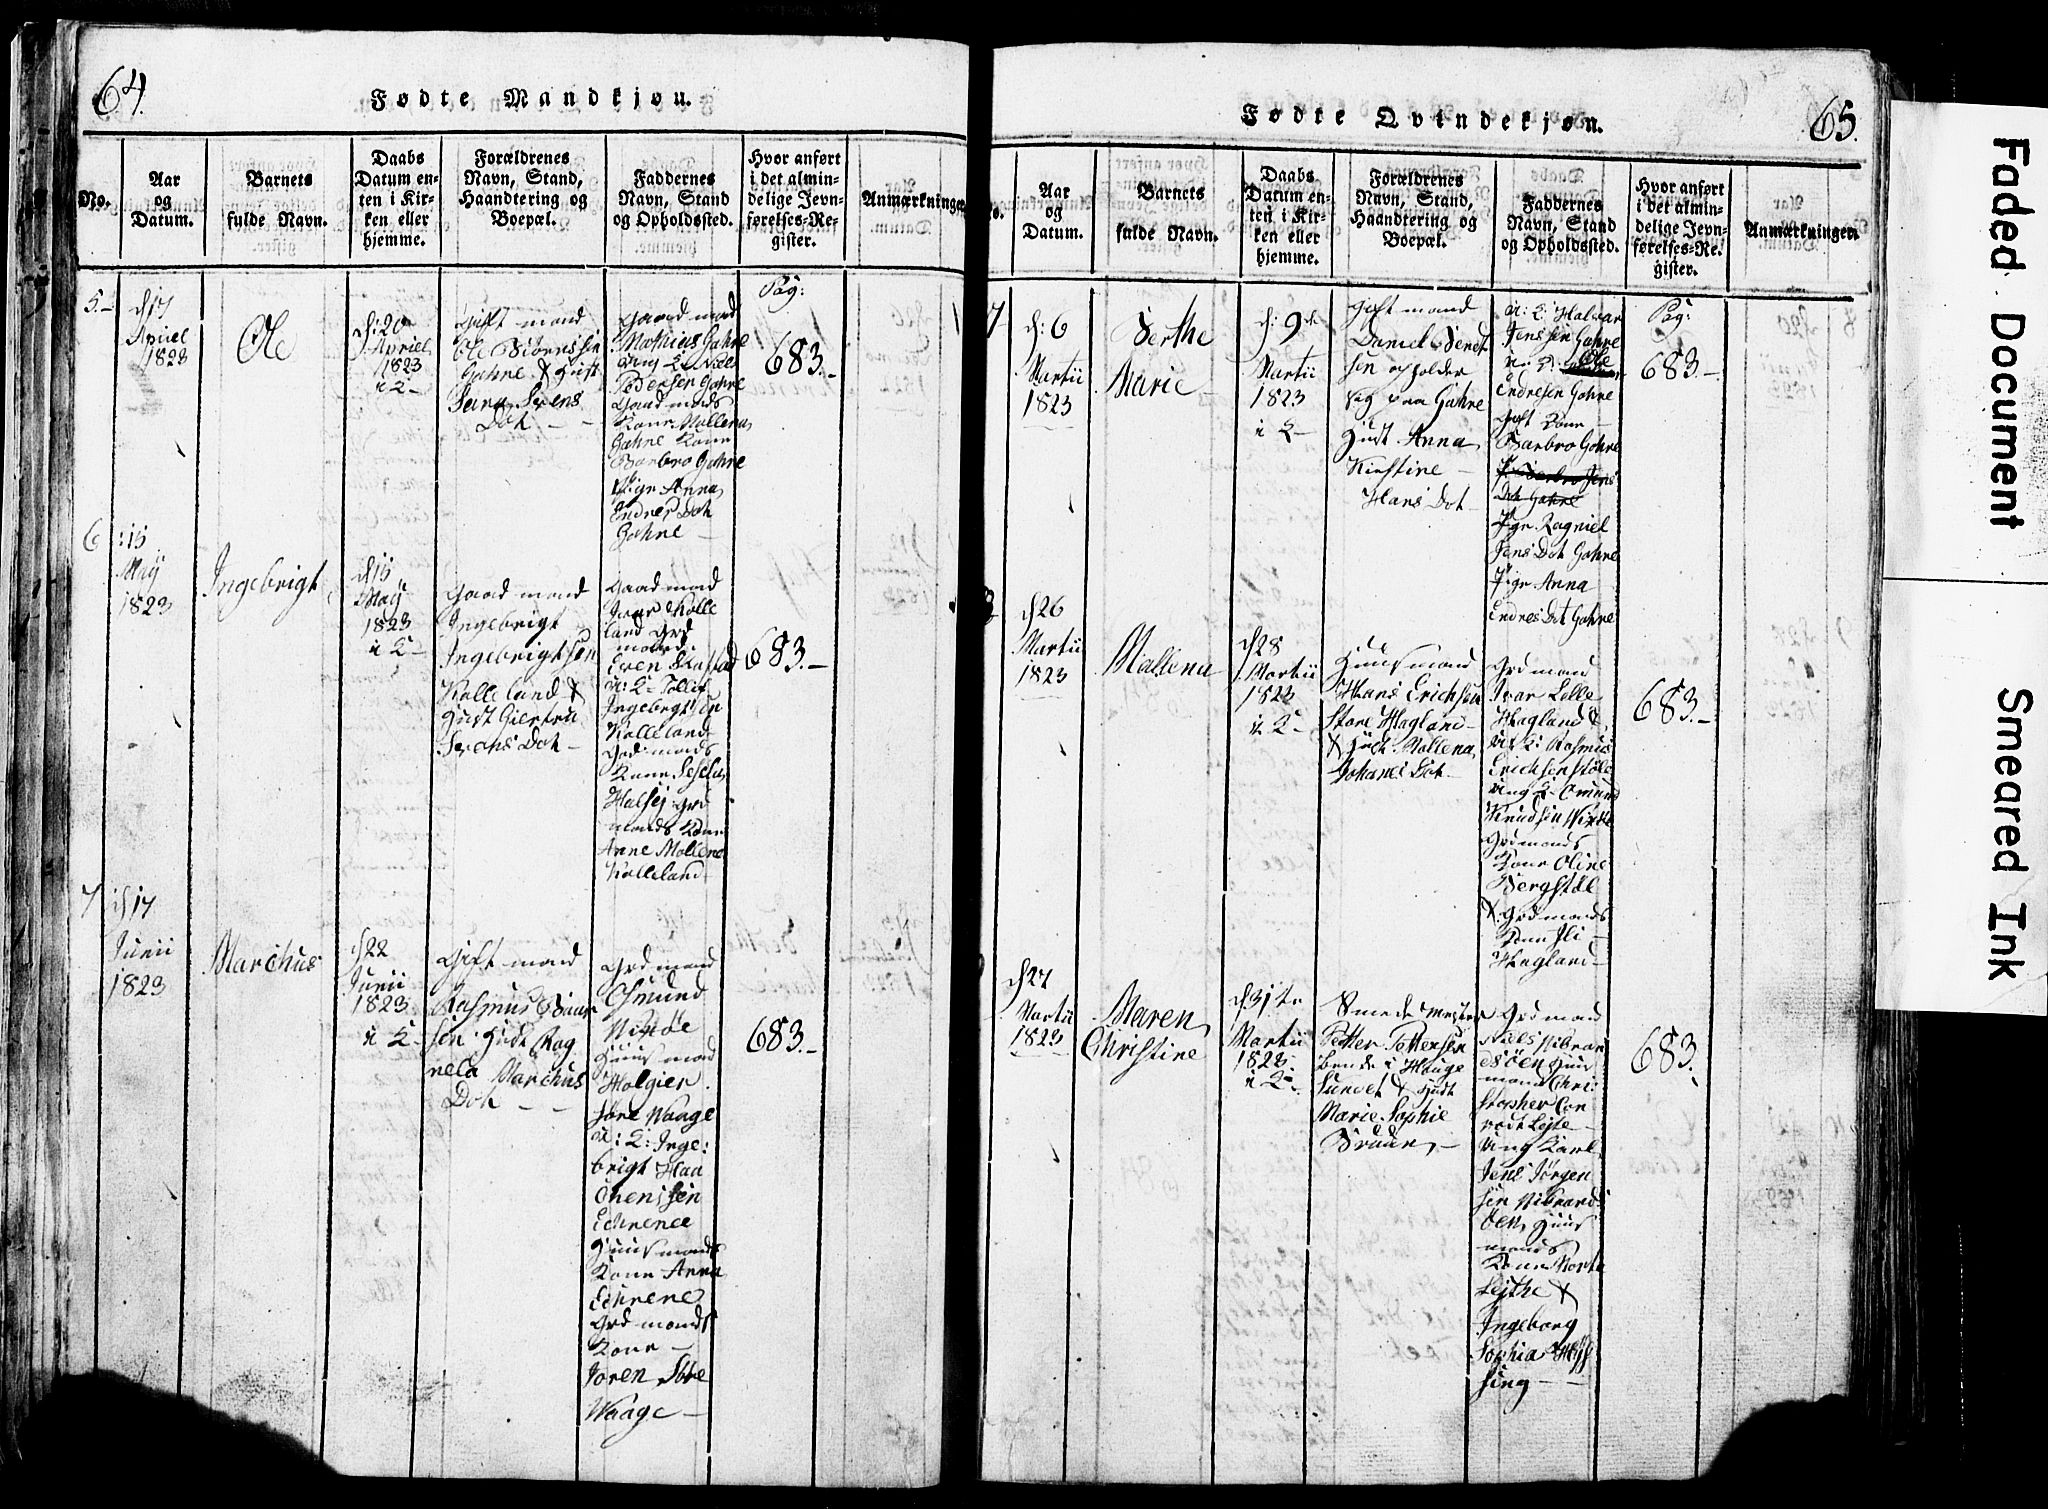 64.
Fødte Mandkjøn.
No.
Aar
og
Datum.
Barnets
fulde Navn.
Daabs
Datum en-
ten i Kir-
ken eller
hjemme.
Forældrenes
Navn, Stand,
Haandtering og
Boepæl.
Faddernes
Navn, Stand
og Opholdssted.
Hvor anført
i det almin-
delige Jevn-
førelses-Re-
gister.
Anmærkninger.
5.-
d 17
Apriel
1823
Ole
d: 20
Apriel
1823
i K-
Gift mand
Ole Biørnssen
Gahne &
Dot -
Gaard mand
Mathias Gahne
ung K: Niels
Pedersen Gahne
Gaard mands
Kone Mallena
Gahne Kone
Barbro Gahne
Pige Anna
Endres Dot
Gahne -
Pag:
683.-
6
:15
Maÿ
1823
Ingebrigt
d 15
Maÿ
1823
i K-
Gaard mand
Ingebrigt
Ingebrigtsen
Kalleland &
Hust Giertru
Svens Dot -
Gaard mand
Ivar Kalle
land Grd
mand
Even
u: K- Tollif
Ingebrigtsen
Kalleland
Grd mands
Kone Sesela
Halsej Grd
mands Kone
Anne Mallene
Kalleland
683.-
7
d 17
Junii
1823
Marchus
d 22
Junii
1823
i K-
Gift mand
Rasmus
sen Hust Rag
nela Marchus
Dot - -
Grd mand
Osmund
Huus mand
Holgier
Store Waage
u: K: Inge:
brigt Haa
Echrenee
Huus mands
Kone Anna
Echrene
Grd mands
Kone -
Joren Store
Waage -
683.-
65.
Fødte Qvindekjøn.
No.
Aar
og
Datum.
Barnets
fulde Navn.
Daabs
Datum en-
ten i Kir-
ken eller
hjemme.
Forældrenes
Navn, Stand,
Haandtering og
Boepæl.
Faddernes
Navn, Stand
og Opholdssted.
Hvor anført
i det almin-
delige Jevn-
førelses-Re-
gister.
Anmærkninger.
7
d: 6
Martii
1823
Berthe
Marie -
d: 9de
Martii
1823
i K-
Gift mand
Daniel Bendt
sen opholder
sig paa Gahne
Hust Anna
Kirstine -
Hans Dot -
u: K: Halvar
Jenssen Gahne
u: K: Ole
Endresen Gahne
Gift Kone -
Barbro Gahne
Barbro Jens
Dot Gahne
Pige Ragniel
Jens Dot Gahne
Pige Anna
Endres Dot Gahne
Pag:
683.-
d 26
Martii
1823
Mallena
d 28
Martii
1823
i K-
Huusmand
Hans Erichsen
Store Hagland
& Hust Mallena
Johanes Dot -
Grd mand
Ivar Lille
Hagland &
u: K: Rasmus
Erichsen
ung K- Omund
Knudsen
Grd mands
Kone Oline
Bergstøl
& Grd mands
Kone Eli -
Hagland -
683.-
d 27
Martii
1823
Maren
Christine
d. 31te
Martii
1823
i K-
Smede mester
Petter Pettersen
boende i Hauge
sundet & Hust
Marie Sophie
Bruun -
Grd mand
Niels
Huus
mand Chri:
stopher Con
radt Lejte -
ung Karl
Jens Jørgen
sen
Huus
mands
Kone Marta
Lejthe &
Ingeborg
Sophia
sing -
683.-
Faded Document
Smeared Ink